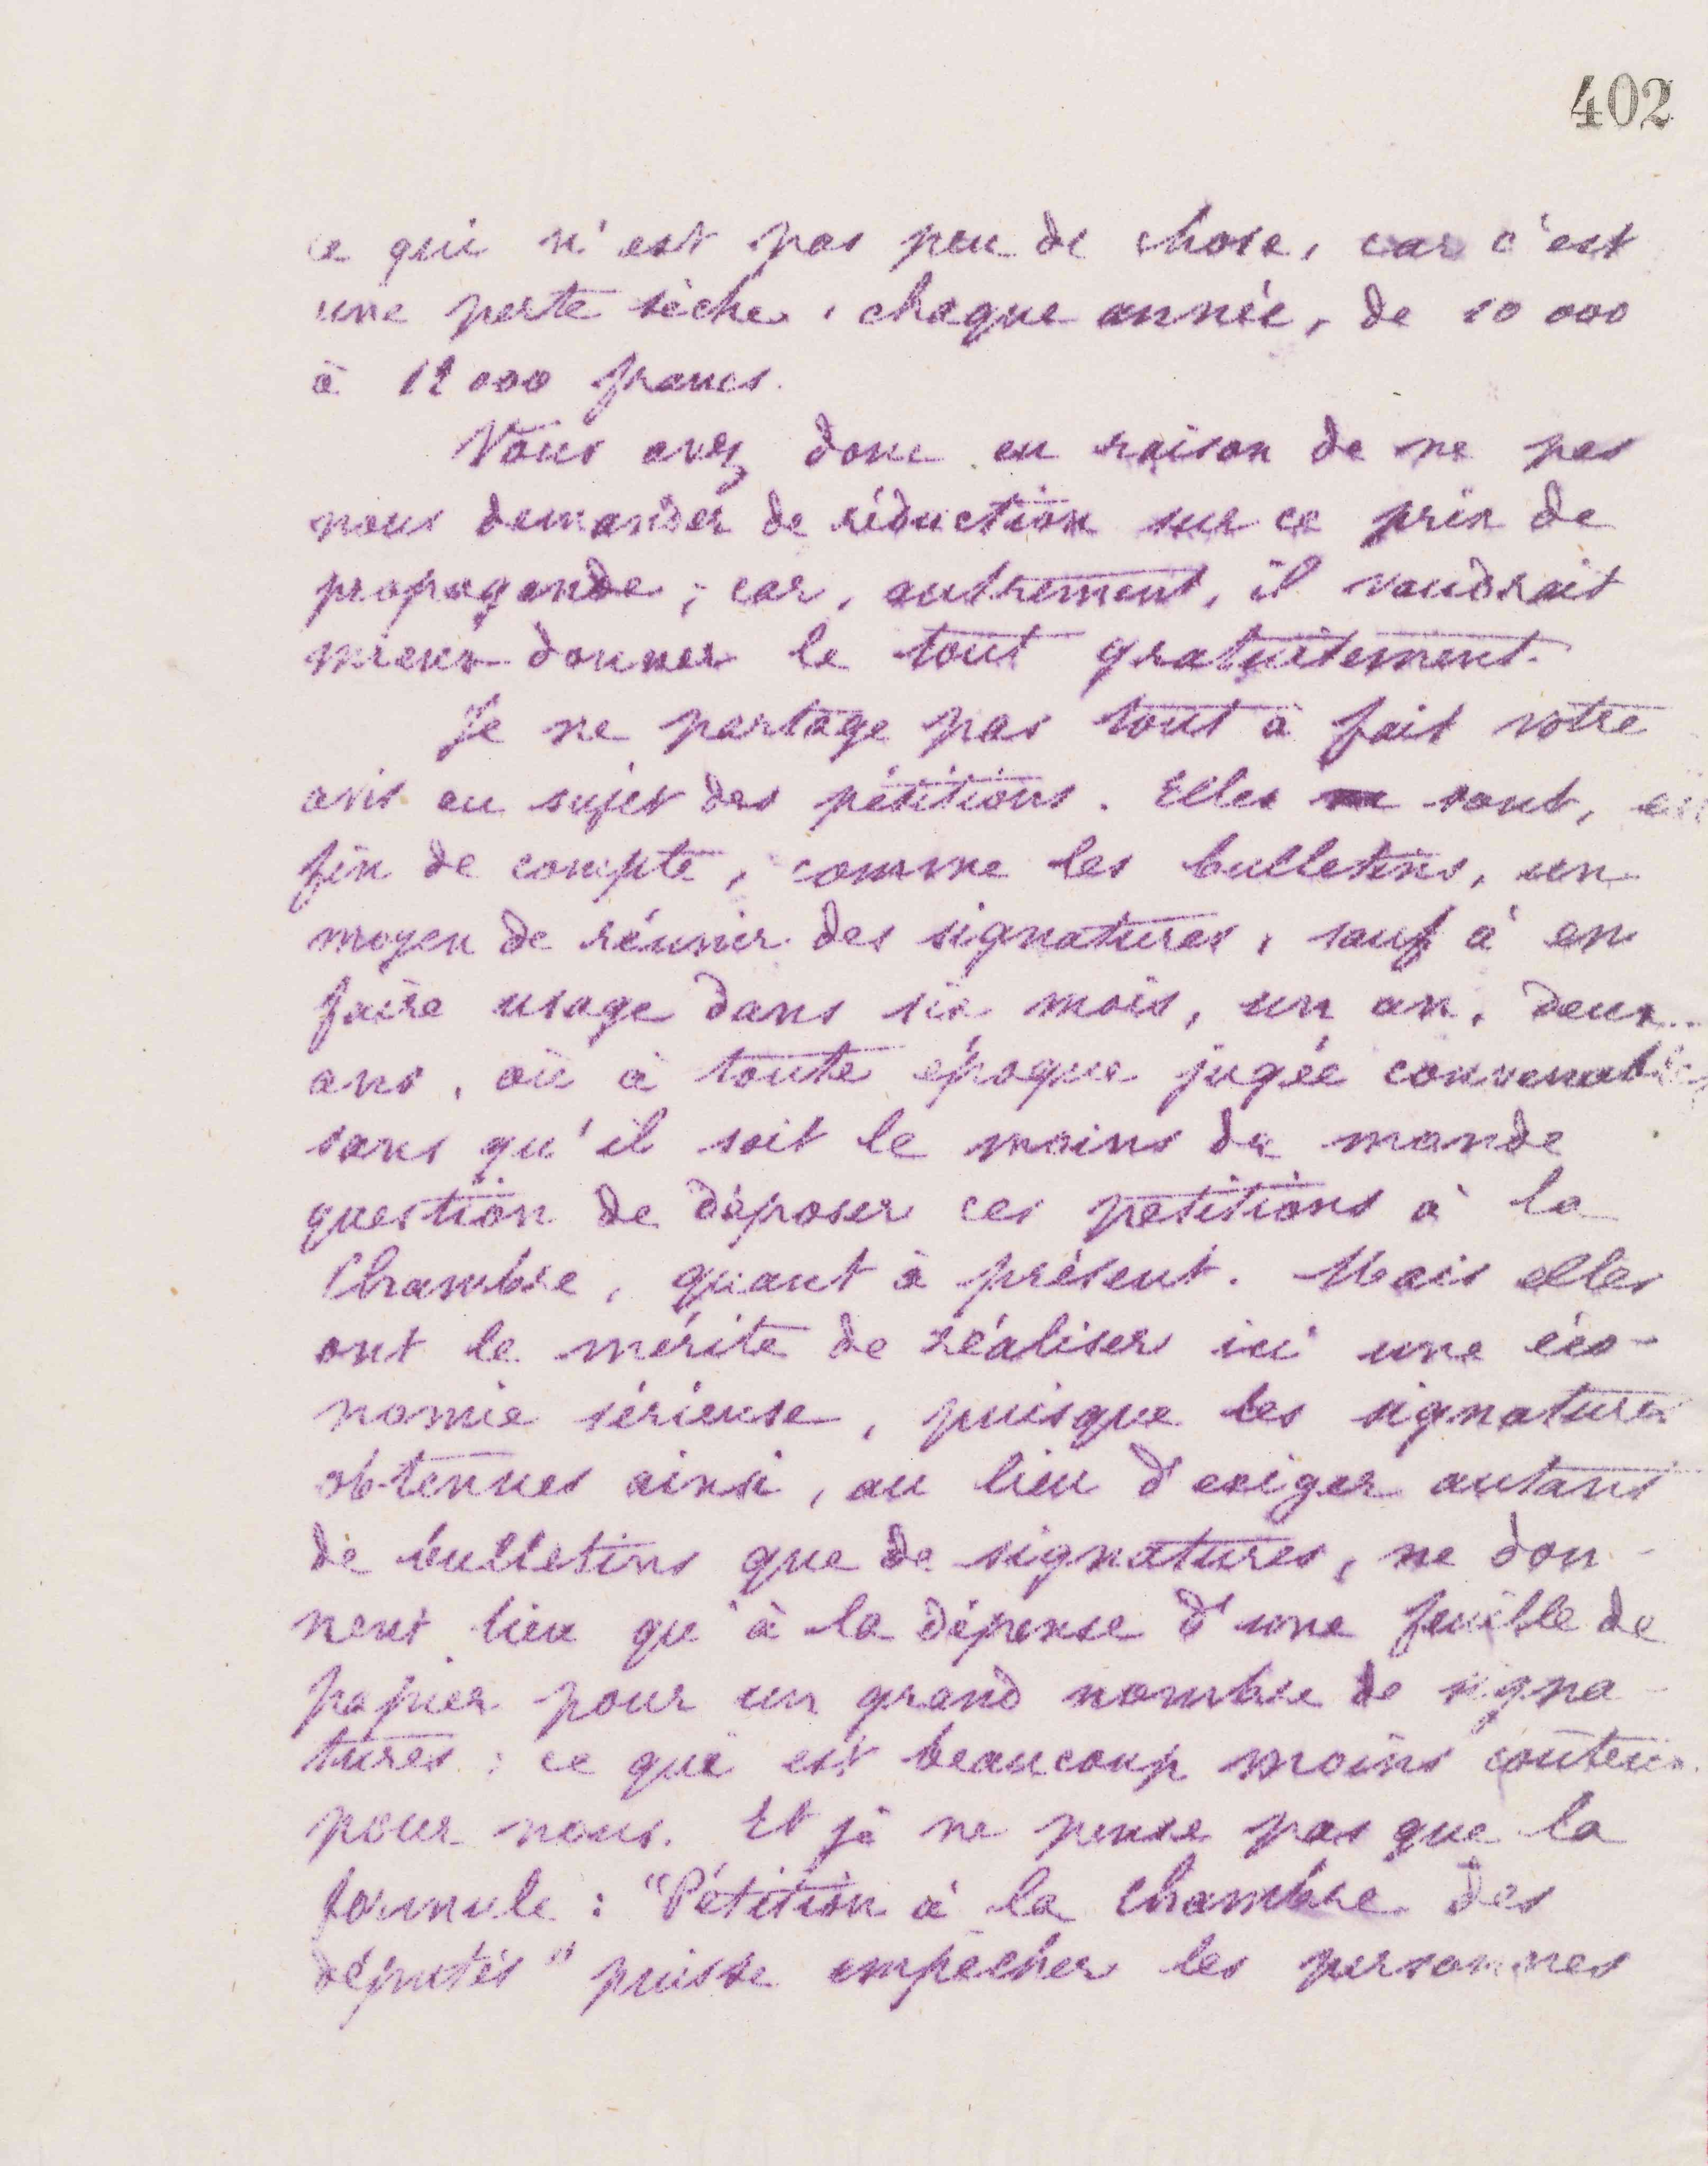 402
ce qui n'est pas peu de chose, car c'est
une perte sèche, chaque année, de 10 000
à 12 000 francs.
Vous avez donc eu raison de ne pas
nous demander de réduction sur ce prix de
propagande ; car, autrement, il vaudrait
mieux donner le tout gratuitement.
Je ne partage pas tout à fait votre
avis au sujet des pétitions. Elles sont, en
fin de compte, comme les bulletins, un
moyen de réunir des signatures, sauf à en
faire usage dans six mois, un an, deux
ans, où à toute époque jugée convenable,
sans qu'il soit le moins du monde
question de déposer ces pétitions à la
Chambre, quant à présent. Mais elles
ont le mérite de réaliser ici une éco-
nomie sérieuse, puisque les signatures
obtenues ainsi, au lieu d'exiger autant
de bulletins que de signatures, ne don-
nent lieu qu'à la dépense d'une feuille de
papier pour un grand nombre de signa-
tures ; ce qui est beaucoup moins coûteux
pour nous. Et je ne pense pas que la
formule : "Pétition à la Chambre des
députés" puisse empêcher les personnes